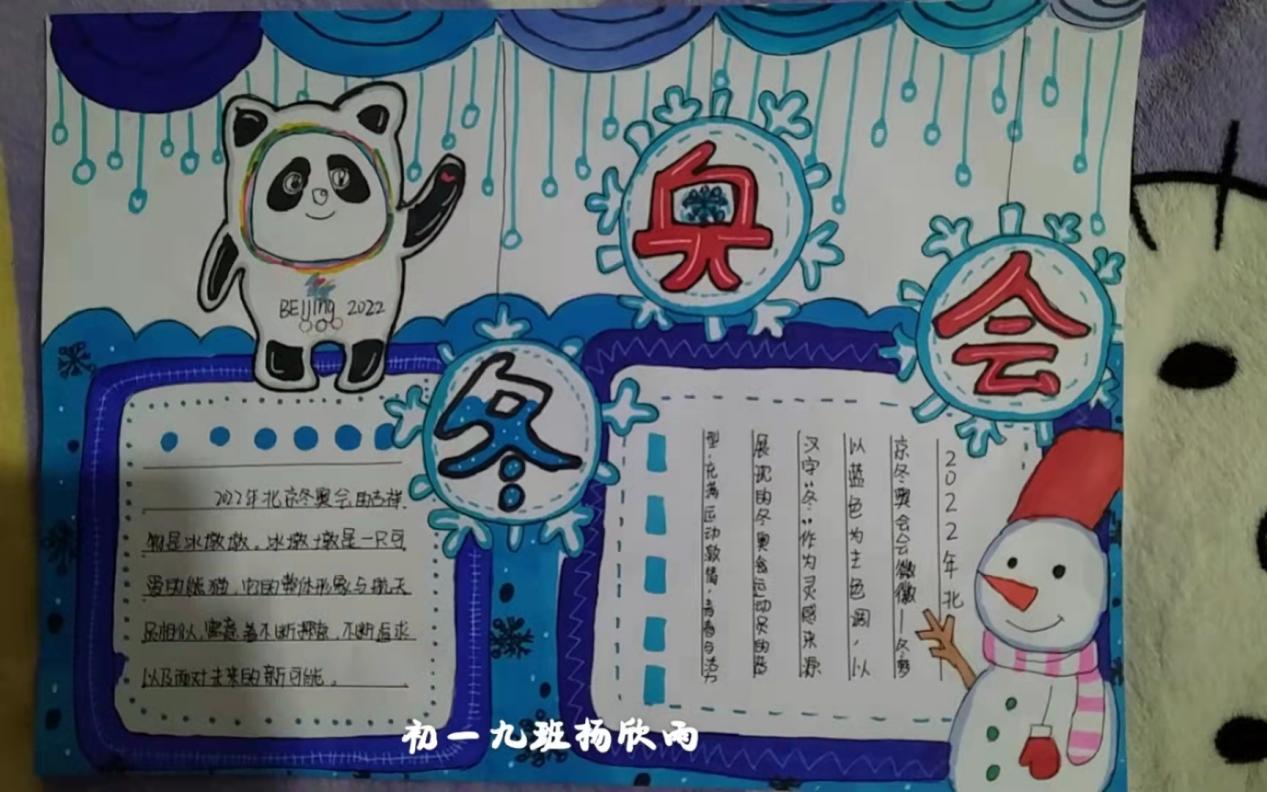 冬奥会
BEIJing 2022
2022年北京冬奥会的吉祥
物是冰墩墩。冰墩墩是一只可
爱的熊猫,它的整体形象与航天
员相似,寓意着不断探索,不断追求
以及面对未来的新可能。
2022年北
京冬奥会会徽徽—冬梦
以蓝色为主色调,以
汉字"冬"作为灵感来源
展现的冬奥会运动员的造
型,充满运动激情,青春与活力
初一九班杨欣雨